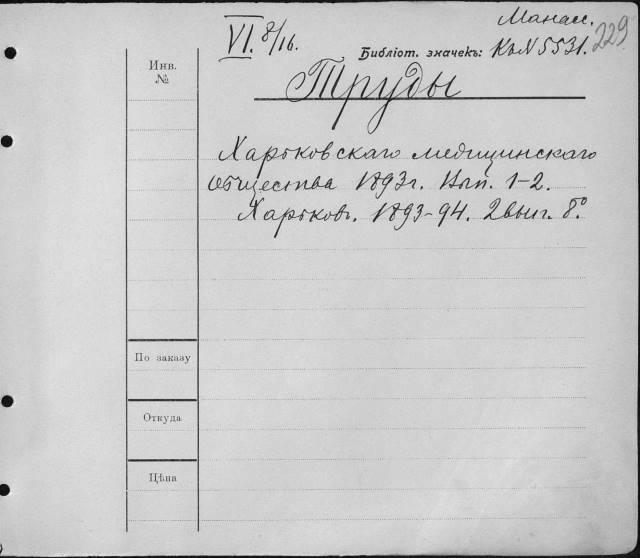 Манас.
VI. 8/16.
229
Библіот. значекъ: Къ N 5531.
Инв.
№
Труды
Харьковскаго медицинскаго
общества 1893г. Вып. 1-2.
Харьковъ. 1893-94. 2 вып. 8°
По заказу
Откуда
Цѣна